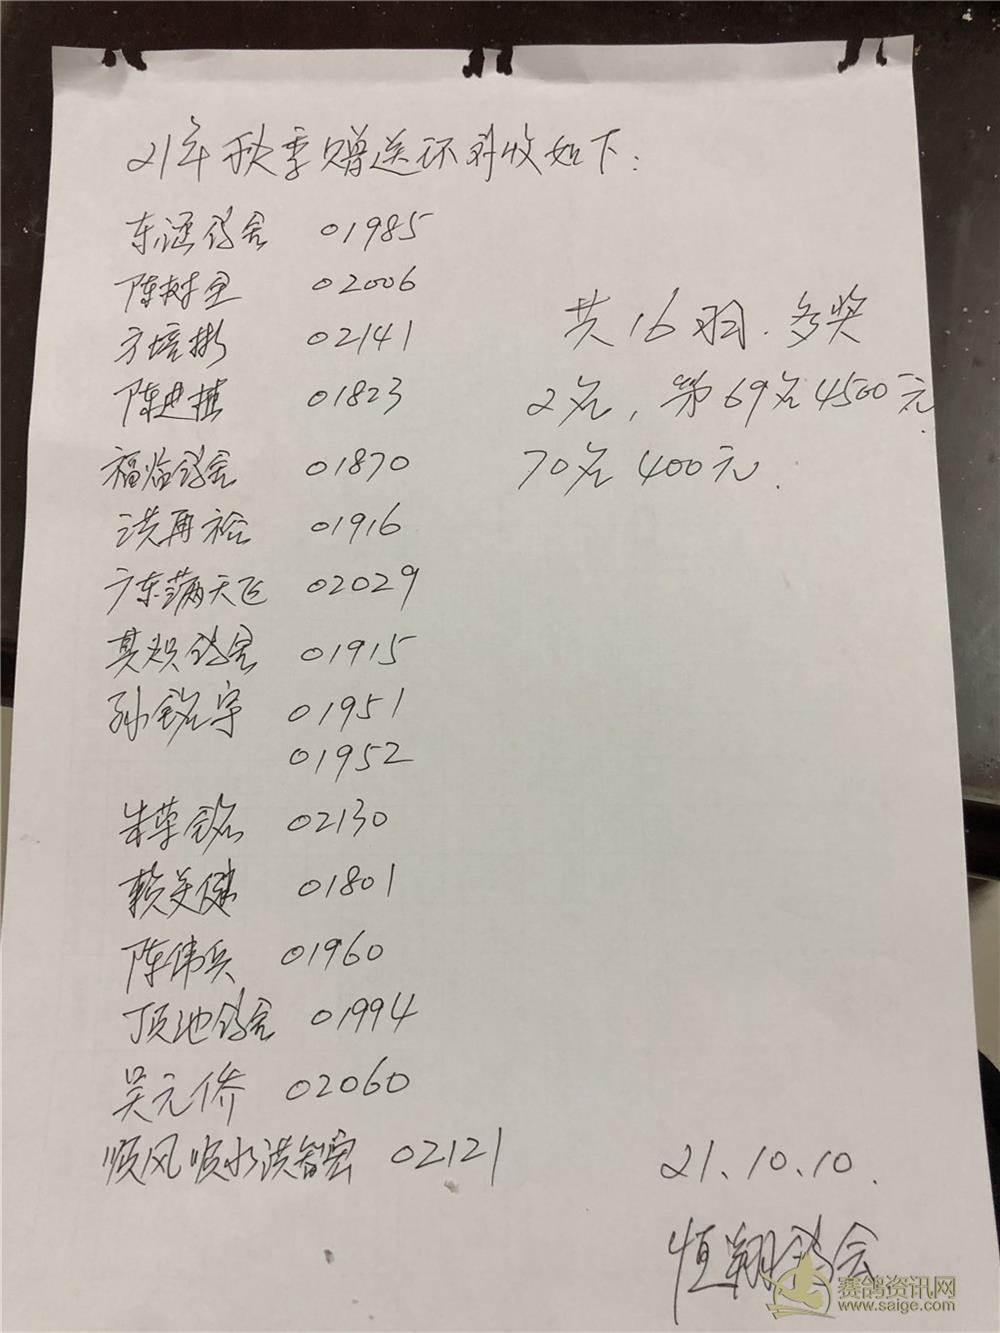 21年秋季赠送环补收如下:
东涵鸽舍 01985
陈树 02006
方培彬 02141
陈进植 01823
福临鸽舍 01870
洪再裕 01916
广东满天飞 02029
其观鸽舍 01915
孙铭宇 01951
01952
朱荣铭 02130
赖美健 01801
陈伟兵 01960
顶池鸽舍 01994
吴元侨 02060
顺风顺水洪智宏 02121
共16羽.多奖
2名,第69名4500元
70名400元.
21.10.10.
恒翔鸽会
赛鸽资讯网
www.saige.com